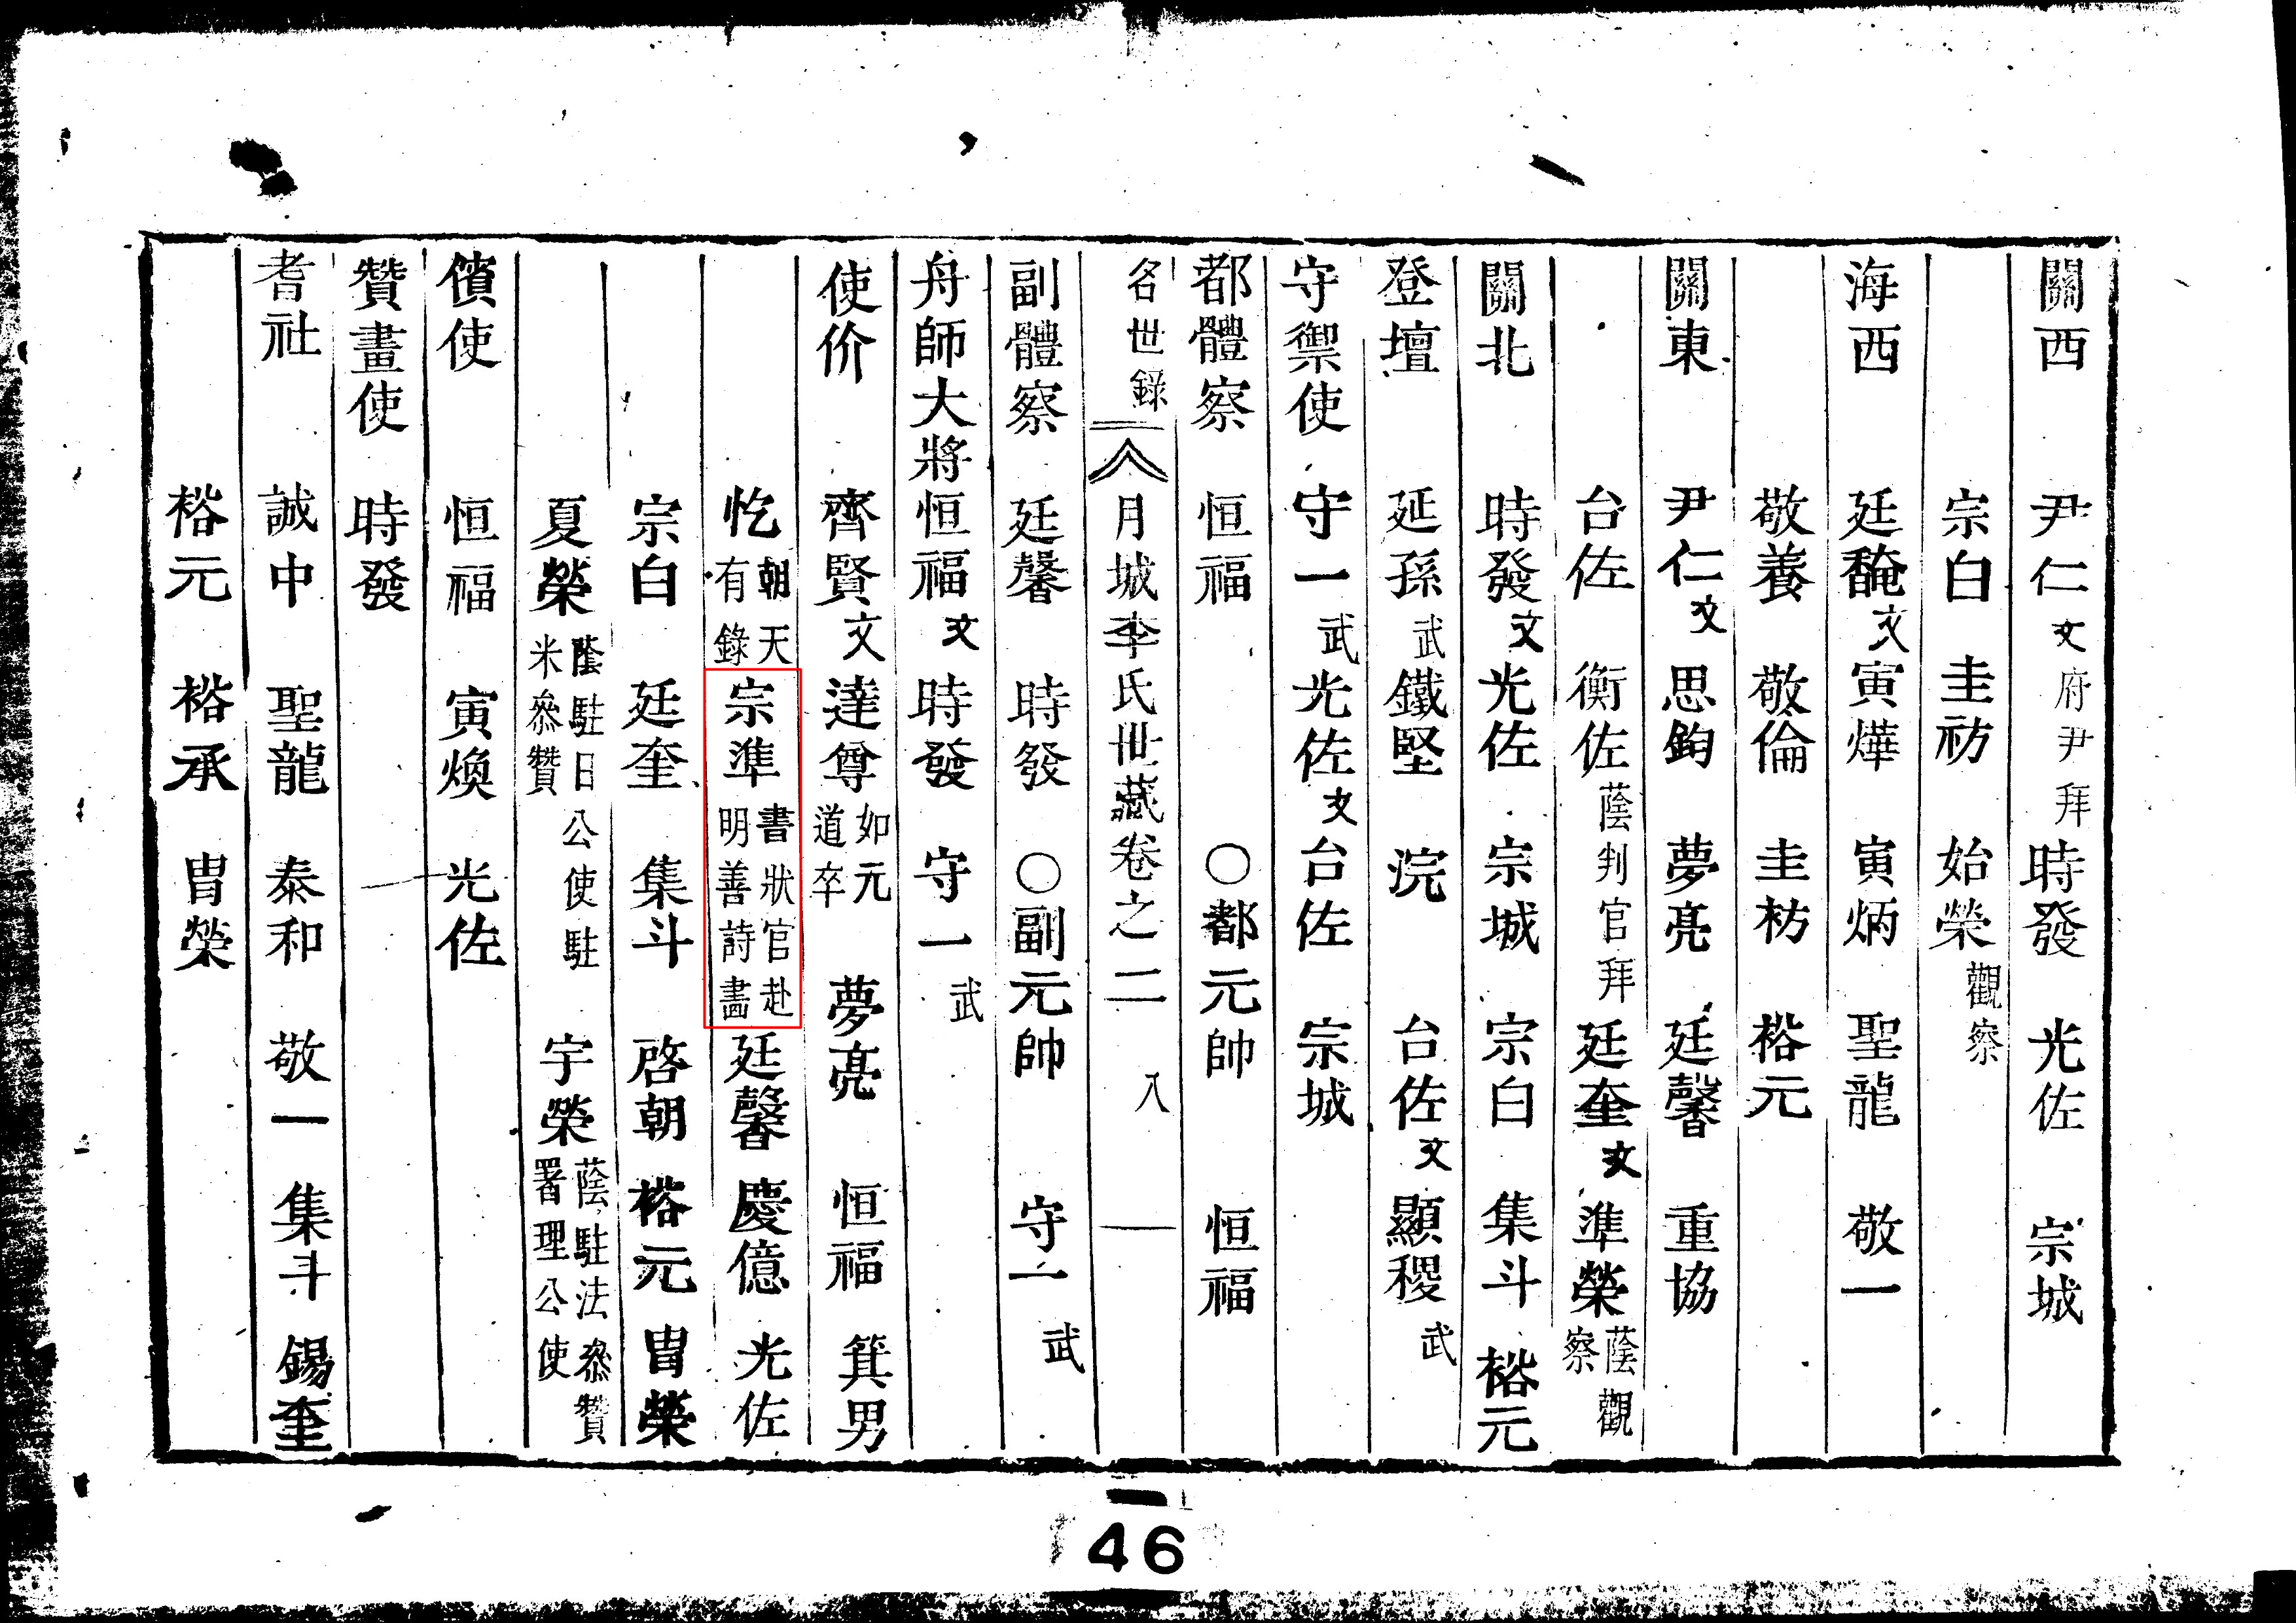 關西 尹仁 文 府尹拜 時發 光佐 宗城
宗白 圭祊 始榮 觀察
海西 廷馣 文 寅燁 寅炳 聖龍 敬一
敬養 敬倫 圭枋 裕元
關東 尹仁 文 思鈞 夢亮 廷馨 重協
台佐 衡佐 蔭判官拜 廷奎 文 準榮 蔭觀察
關北 時發 文 光佐 宗城 宗白 集斗 裕元
登壇 延孫 武 鐵堅 浣 台佐 文 顯稷 武
守禦使 守一 武 光佐 文 台佐 宗城
都體察 恒福 〇都元帥 恒福
名世錄 月城李氏世藏卷之二 八
副體察 廷馨 時發 〇副元帥 守一 武
舟師大將 恒福 文 時發 守一 武
使价 齊賢 文 達尊 如元道卒 夢亮 恒福 箕男
忔 朝天有錄 宗準 書狀官赴明善詩畵 廷馨 慶億 光佐
宗白 廷奎 集斗 啓朝 裕元 冑榮
夏榮 蔭駐日公使駐米叅贊 宇榮 蔭駐法叅贊署理公使
儐使 恒福 寅煥 光佐
贊畫使 時發
耆社 誠中 聖龍 泰和 敬一 集斗 錫奎
裕元 裕承 冑榮
46